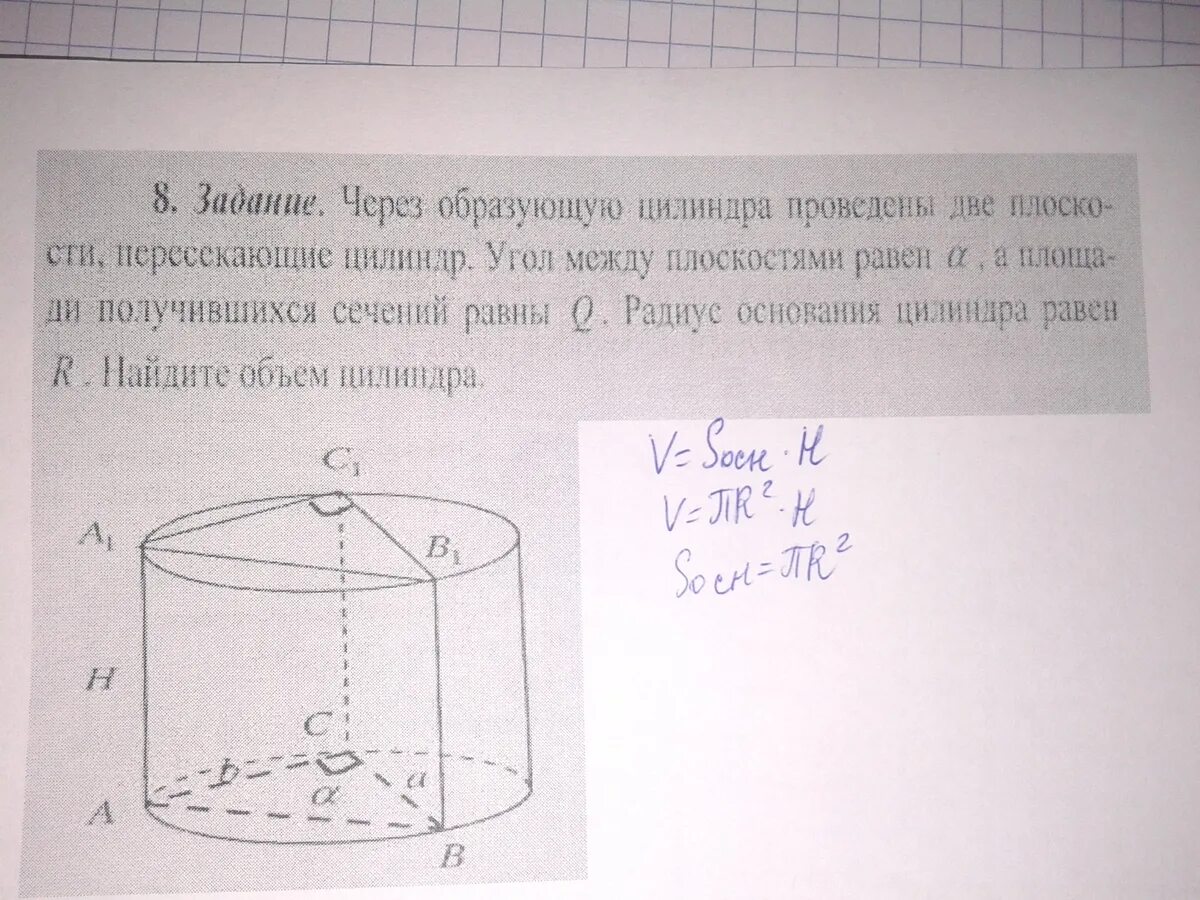 8. Задание. Через образующую цилиндра проведены две плоско-
сти, пересекающие цилиндр. Угол между плоскостями равен α , а площа-
ди получившихся сечений равны Q . Радиус основания цилиндра равен
R . Найдите объем цилиндра.
V = Sосн · H
V = ПR² · H
Sосн = ПR²
C₁
A₁
B₁
H
C
b
a
α
A
B